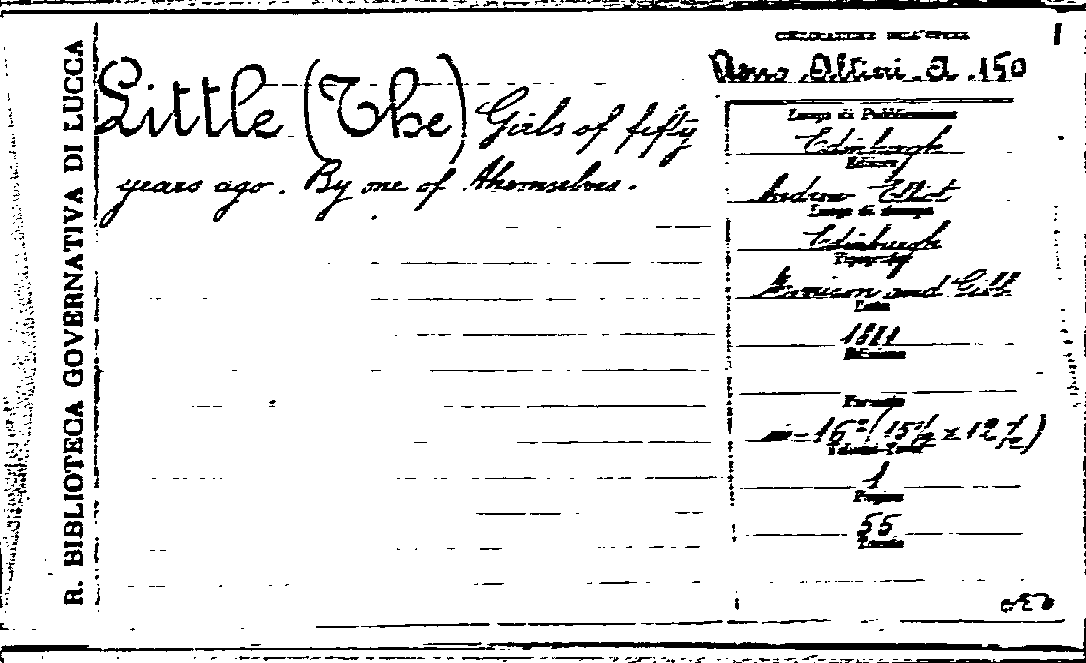 R. BIBLIOTECA GOVERNATIVA DI LUCCA
COLLOCAZIONE DELL'OPERA
1
Altieri A. 150
Little (The) Girls of fifty
years ago. By one of themselves.
Luogo di Pubblicazione
Edinburgh
Editore
Andrew Elliot
Luogo di stampa
Edinburgh
Tipografo
Morrison and Gibb
Data
1881
Edizione
Formato
in-16º (15½ x 12½)
Volumi-Tomi
1
Pagine
55
Tavole